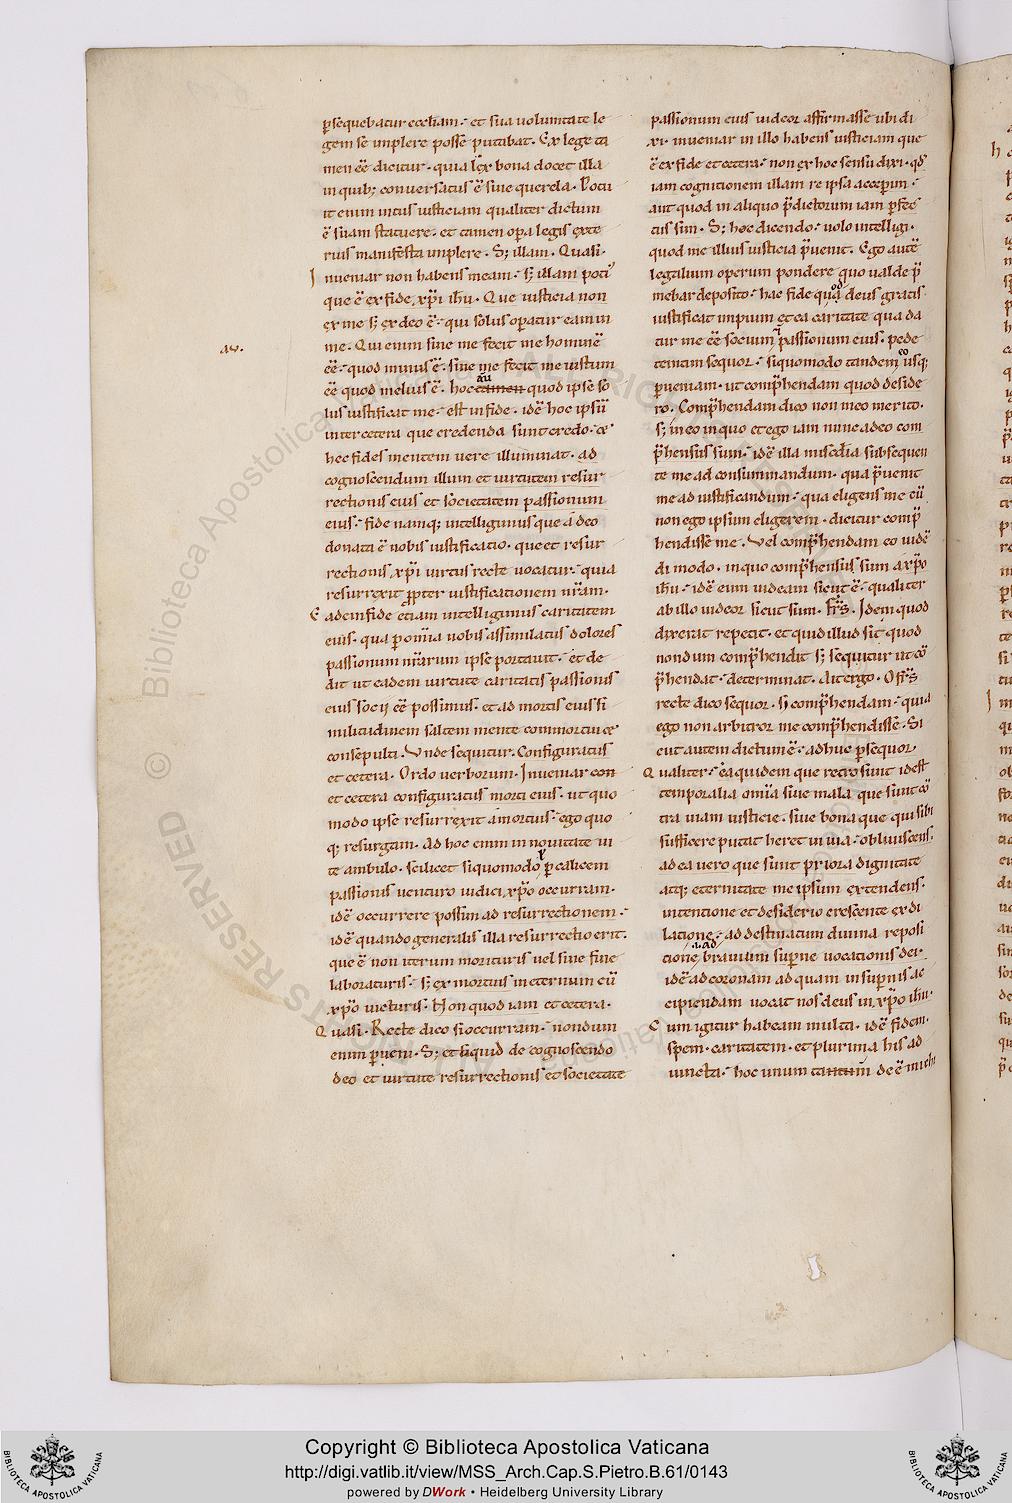 ꝑsequebatur ecc̄liam. et sua uoluntate le
gem se implere posse putabat. Ex lege ta
men ēē dicitur. quia lex bona docet illa
in quib; conuersatus ē sine querela. Potu
it enim intus iusticiam qualiter dictum
ē suam statuere. et tamen oꝑa legis exte
rius manifesta implere. S; illam. Quasi.
Inueniar non habens meam. s; illam poti
que ē ex fide xp̄i ih̄u. Que iusticia non
ex me s; ex deo ē. qui solus oꝑatur eam in
me. Qui enim sine me fecit me hominē
ēē. quod minus ē. sine me fecit me iustum
au.
ēē quod melius ē. hoc tamen quod ipse so
lus iustificat me. est in fide. idē hoc ipsū
inter cetera que credenda sunt credo. et
hec fides mentem uere illuminat. ad
cognoscendum illum et uirtutem resur
rectionis eius et societatem passionum
eius. fide namq; intelligimus que a deo
donata ē nobis iustificatio. que et resur
rectionis xp̄i uirtus recte uocatur. quia
resurrexit ꝓpter iustificationem nr̄am.
Eadem fide etiam intelligimus caritatem
eius. qua ꝑ om̄ia nobis assimilatus dolores
passionum nr̄arum ipse portauit. et de
dit ut eadem uirtute caritatis passionis
eius socii ēē possimus. et ad mortis eius si
militudinem saltem mente commortui et
consepulti. Vnde sequitur. Configuratus
et cetera. Ordo uerborum. Inueniar con
et cetera configuratus morti eius. ut quo
modo ipse resurrexit a mortuis. ego quo
q; resurgam. Ad hoc enim in nouitate ui
te ambulo. scilicet siquomodo ꝑ calicem
passionis uenturo iudici xp̄o occurram.
idē occurrere possim ad resurrectionem.
idē quando generalis illa resurrectio erit.
que ē non iterum morituris uel sine fine
laboraturis. s; ex mortuis in eternum cū
xp̄o uicturis. Non quod iam et cetera.
Quasi. Recte dico si occurram. nondum
enim ꝑueni. S; et siquid de cognoscendo
deo et uirtute resurrectionis et societate
passionum eius uideor affirmasse ubi di
xi. inueniar in illo habens iusticiam que
ē ex fide et cetera. non ex hoc sensu dixi. qđ
iam cognitionem illam re ipsa acceperim.
aut quod in aliquo p̄dictorum iam ꝑfec
tus sim. S; hoc dicendo. uolo intelligi.
quod me illius iusticia p̄uenit. Ego autē
legalium operum pondere quo ualde p̄
mebar deposito. hac fide qua deus gratis
iustificat impium et ea caritate qua da
tur me ēē socium passionum eius. pede
temtam sequor. siquomodo tandem eo usq;
ꝑueniam. ut comp̄hendam quod deside
ro. Comp̄hendam dico non meo merito.
s; in eo in quo et ego iam nunc adeo com
p̄hensus sum. idē illa mis̄cdia subsequen
te me ad consummandum. qua p̄uenit
me ad iustificandum. qua eligens me cū
non ego ipsum eligerem. dicitur comp̄
hendisse me. Vel comp̄hendam eo uidē
di modo. in quo comp̄hensus sum a xp̄o
ih̄u. idē eum uideam sicut ē. qualiter
ab illo uideor sicut sum. Fr̄s. Idem quod
dixerat repetit. et quid illud sit quod
nondum comp̄hendit s; sequitur ut cō
p̄hendat. determinat. Ait ergo. O fr̄s
recte dico sequor. si comp̄hendam. quia
ego non arbitror me comp̄hendisse. Si
cut autem dictum ē. adhuc ꝑsequor.
Qualiter. ea quidem que retro sunt idest
temporalia om̄ia siue mala que sunt cō
tra uiam iusticie. siue bona que qui sibi
sufficere putat heret in uia. obliuiscens.
ad ea uero que sunt priora dignitate
atq; eternitate me ipsum extendens.
intentione et desiderio crescente ex di
latione. ad destinatum diuina reposi
tione brauium suꝑne uocationis dei.
idē ad coronam ad quam in suꝑnis ac
cipiendam uocat nos deus in xp̄o ih̄u.
Cum igitur habeam multa. idē fidem.
spem. caritatem. et plurima his ad
iuncta. hoc unum tantum de ē michi
Copyright © Biblioteca Apostolica Vaticana
http://digi.vatlib.it/view/MSS_Arch.Cap.S.Pietro.B.61/0143
powered by DWork • Heidelberg University Library